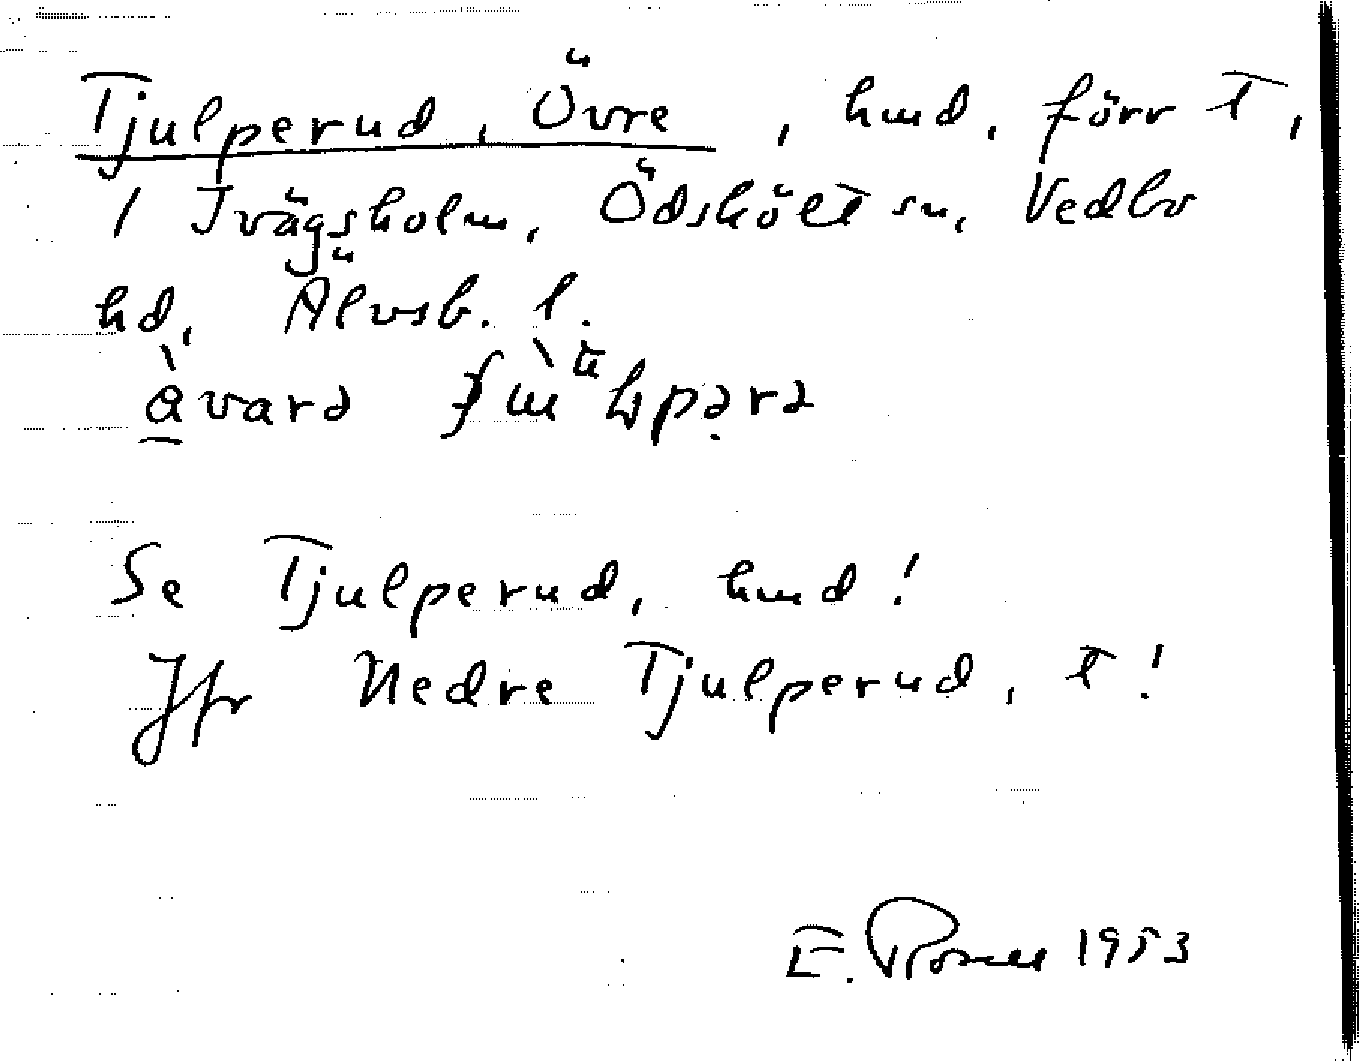 Tjulperud, Övre, hmd, förr t,
1 Ivägsholm, Ödskölt sn, Vedbo
hd, Älvsb. l.
Se Tjulperud, hmd!
Jfr Nedre Tjulperud, t!
E. 1953